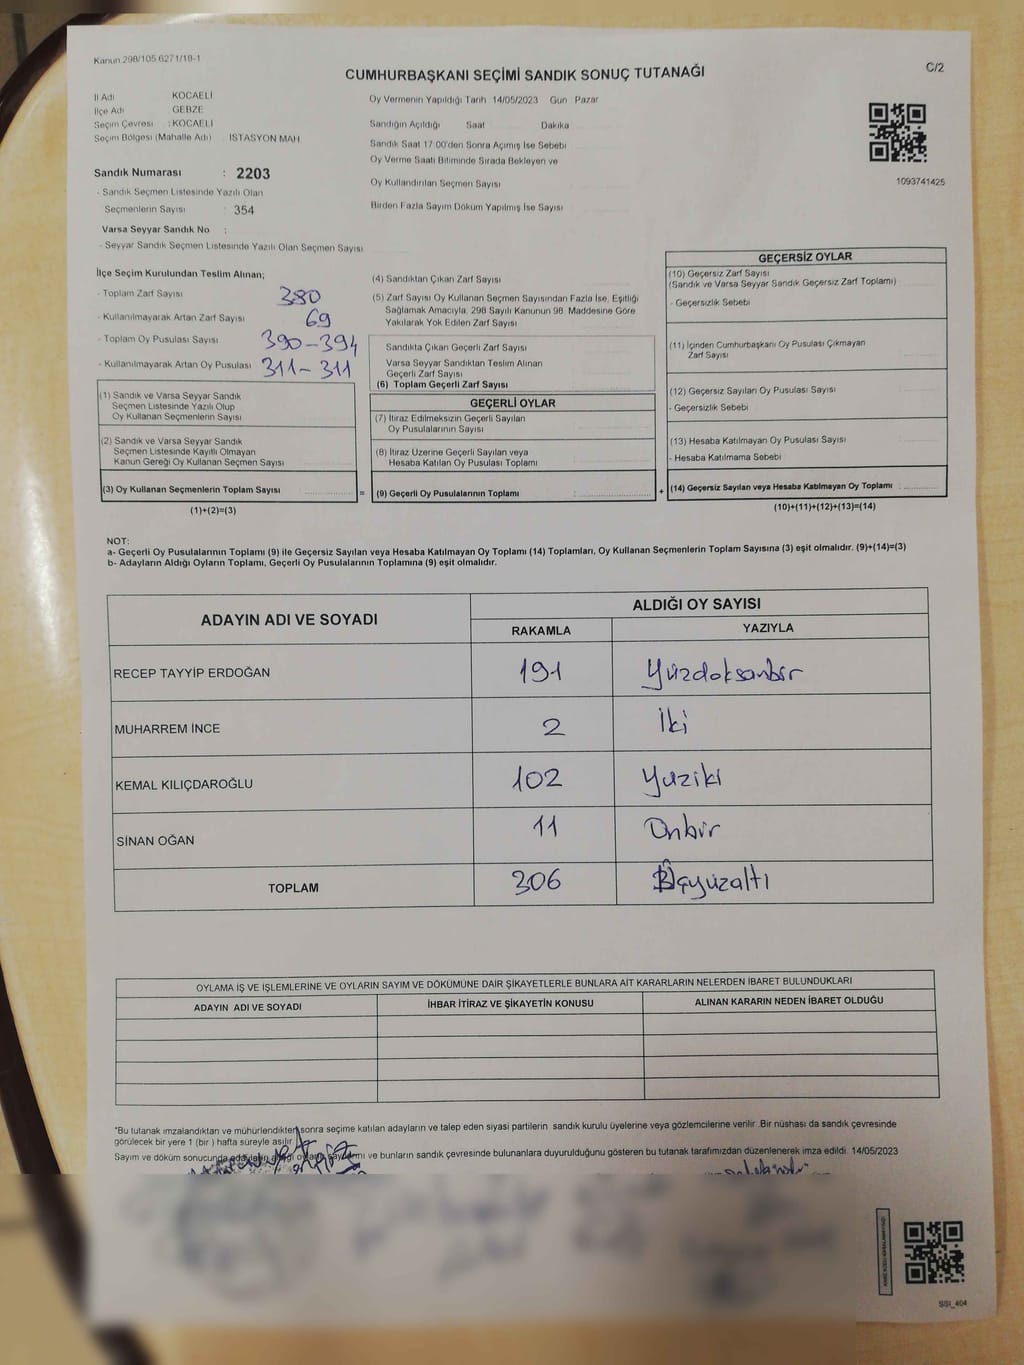 Kanun 298/105 6271/18-1
CUMHURBAŞKANI SEÇİMİ SANDIK SONUÇ TUTANAĞI
C/2
İl Adı KOCAELİ
İlçe Adı GEBZE
Seçim Çevresi : KOCAELİ
Seçim Bölgesi (Mahalle Adı) İSTASYON MAH
Oy Vermenin Yapıldığı Tarih 14/05/2023 Gün Pazar
Sandığın Açıldığı Saat Dakika
Sandık Saat 17:00'den Sonra Açımış İse Sebebi
Oy Verme Saati Bitiminde Sırada Bekleyen ve
Oy Kullandırılan Seçmen Sayısı
Birden Fazla Sayım Döküm Yapılmış İse Sayısı
1093741425
Sandık Numarası : 2203
- Sandık Seçmen Listesinde Yazılı Olan
Seçmenlerin Sayısı : 354
Varsa Seyyar Sandık No :
- Seyyar Sandık Seçmen Listesinde Yazılı Olan Seçmen Sayısı
İlçe Seçim Kurulundan Teslim Alınan;
- Toplam Zarf Sayısı 380
- Kullanılmayarak Artan Zarf Sayısı 69
- Toplam Oy Pusulası Sayısı 390-394
- Kullanılmayarak Artan Oy Pusulası 311-311
(1) Sandık ve Varsa Seyyar Sandık
Seçmen Listesinde Yazılı Olup
Oy Kullanan Seçmenlerin Sayısı
(2) Sandık ve Varsa Seyyar Sandık
Seçmen Listesinde Kayıtlı Olmayan
Kanun Gereği Oy Kullanan Seçmen Sayısı
(3) Oy Kullanan Seçmenlerin Toplam Sayısı =
(1)+(2)=(3)
(4) Sandıktan Çıkan Zarf Sayısı
(5) Zarf Sayısı Oy Kullanan Seçmen Sayısından Fazla İse, Eşitliği
Sağlamak Amacıyla, 298 Sayılı Kanunun 98. Maddesine Göre
Yakılarak Yok Edilen Zarf Sayısı
Sandıkta Çıkan Geçerli Zarf Sayısı
Varsa Seyyar Sandıktan Teslim Alınan
Geçerli Zarf Sayısı
(6) Toplam Geçerli Zarf Sayısı
GEÇERLİ OYLAR
(7) İtiraz Edilmeksizin Geçerli Sayılan
Oy Pusulalarının Sayısı
(8) İtiraz Üzerine Geçerli Sayılan veya
Hesaba Katılan Oy Pusulası Toplamı
(9) Geçerli Oy Pusulalarının Toplamı : +
GEÇERSİZ OYLAR
(10) Geçersiz Zarf Sayısı
(Sandık ve Varsa Seyyar Sandık Geçersiz Zarf Toplamı)
- Geçersizlik Sebebi
(11) İçinden Cumhurbaşkanı Oy Pusulası Çıkmayan
Zarf Sayısı
(12) Geçersiz Sayılan Oy Pusulası Sayısı
- Geçersizlik Sebebi
(13) Hesaba Katılmayan Oy Pusulası Sayısı
- Hesaba Katılmama Sebebi
(14) Geçersiz Sayılan veya Hesaba Katılmayan Oy Toplamı :
(10)+(11)+(12)+(13)=(14)
NOT:
a- Geçerli Oy Pusulalarının Toplamı (9) ile Geçersiz Sayılan veya Hesaba Katılmayan Oy Toplamı (14) Toplamları, Oy Kullanan Seçmenlerin Toplam Sayısına (3) eşit olmalıdır. (9)+(14)=(3)
b- Adayların Aldığı Oyların Toplamı, Geçerli Oy Pusulalarının Toplamına (9) eşit olmalıdır.
ADAYIN ADI VE SOYADI
ALDIĞI OY SAYISI
RAKAMLA YAZIYLA
RECEP TAYYİP ERDOĞAN 191 Yüzdoksanbir
MUHARREM İNCE 2 İki
KEMAL KILIÇDAROĞLU 102 Yüziki
SİNAN OĞAN 11 Onbir
TOPLAM 306 Üçyüzaltı
OYLAMA İŞ VE İŞLEMLERİNE VE OYLARIN SAYIM VE DÖKÜMÜNE DAİR ŞİKAYETLERLE BUNLARA AİT KARARLARIN NELERDEN İBARET BULUNDUKLARI
ADAYIN ADI VE SOYADI İHBAR İTİRAZ VE ŞİKAYETİN KONUSU ALINAN KARARIN NEDEN İBARET OLDUĞU
*Bu tutanak imzalandıktan ve mühürlendikten sonra seçime katılan adayların ve talep eden siyasi partilerin sandık kurulu üyelerine veya gözlemcilerine verilir .Bir nüshası da sandık çevresinde
görülecek bir yere 1 (bir ) hafta süreyle asılır.
Sayım ve döküm sonucunda adayların aldığı ve bunların sandık çevresinde bulunanlara duyurulduğunu gösteren bu tutanak tarafımızdan düzenlenerek imza edildi. 14/05/2023
SSI_404